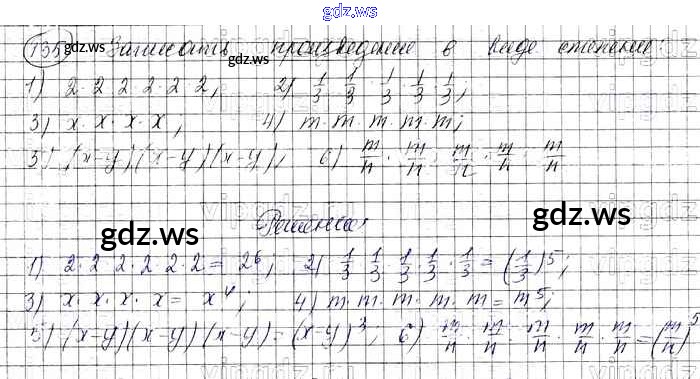 gdz.ws
135 gdz.ws Записать произведение в виде степени:
1) 2·2·2·2·2·2, 2) 1/3·1/3·1/3·1/3·1/3;
3) x·x·x·x; 4) m·m·m·m·m;
5) (x-y)(x-y)(x-y); 6) m/n·m/n·m/n·m/n·m/n
Решение
gdz.ws gdz.ws
1) 2·2·2·2·2·2=2⁶; 2) 1/3·1/3·1/3·1/3·1/3=(1/3)⁵;
3) x·x·x·x=x⁴; 4) m·m·m·m·m=m⁵;
5) (x-y)(x-y)(x-y)=(x-y)³; 6) m/n·m/n·m/n·m/n·m/n=(m/n)⁵
gdz.ws